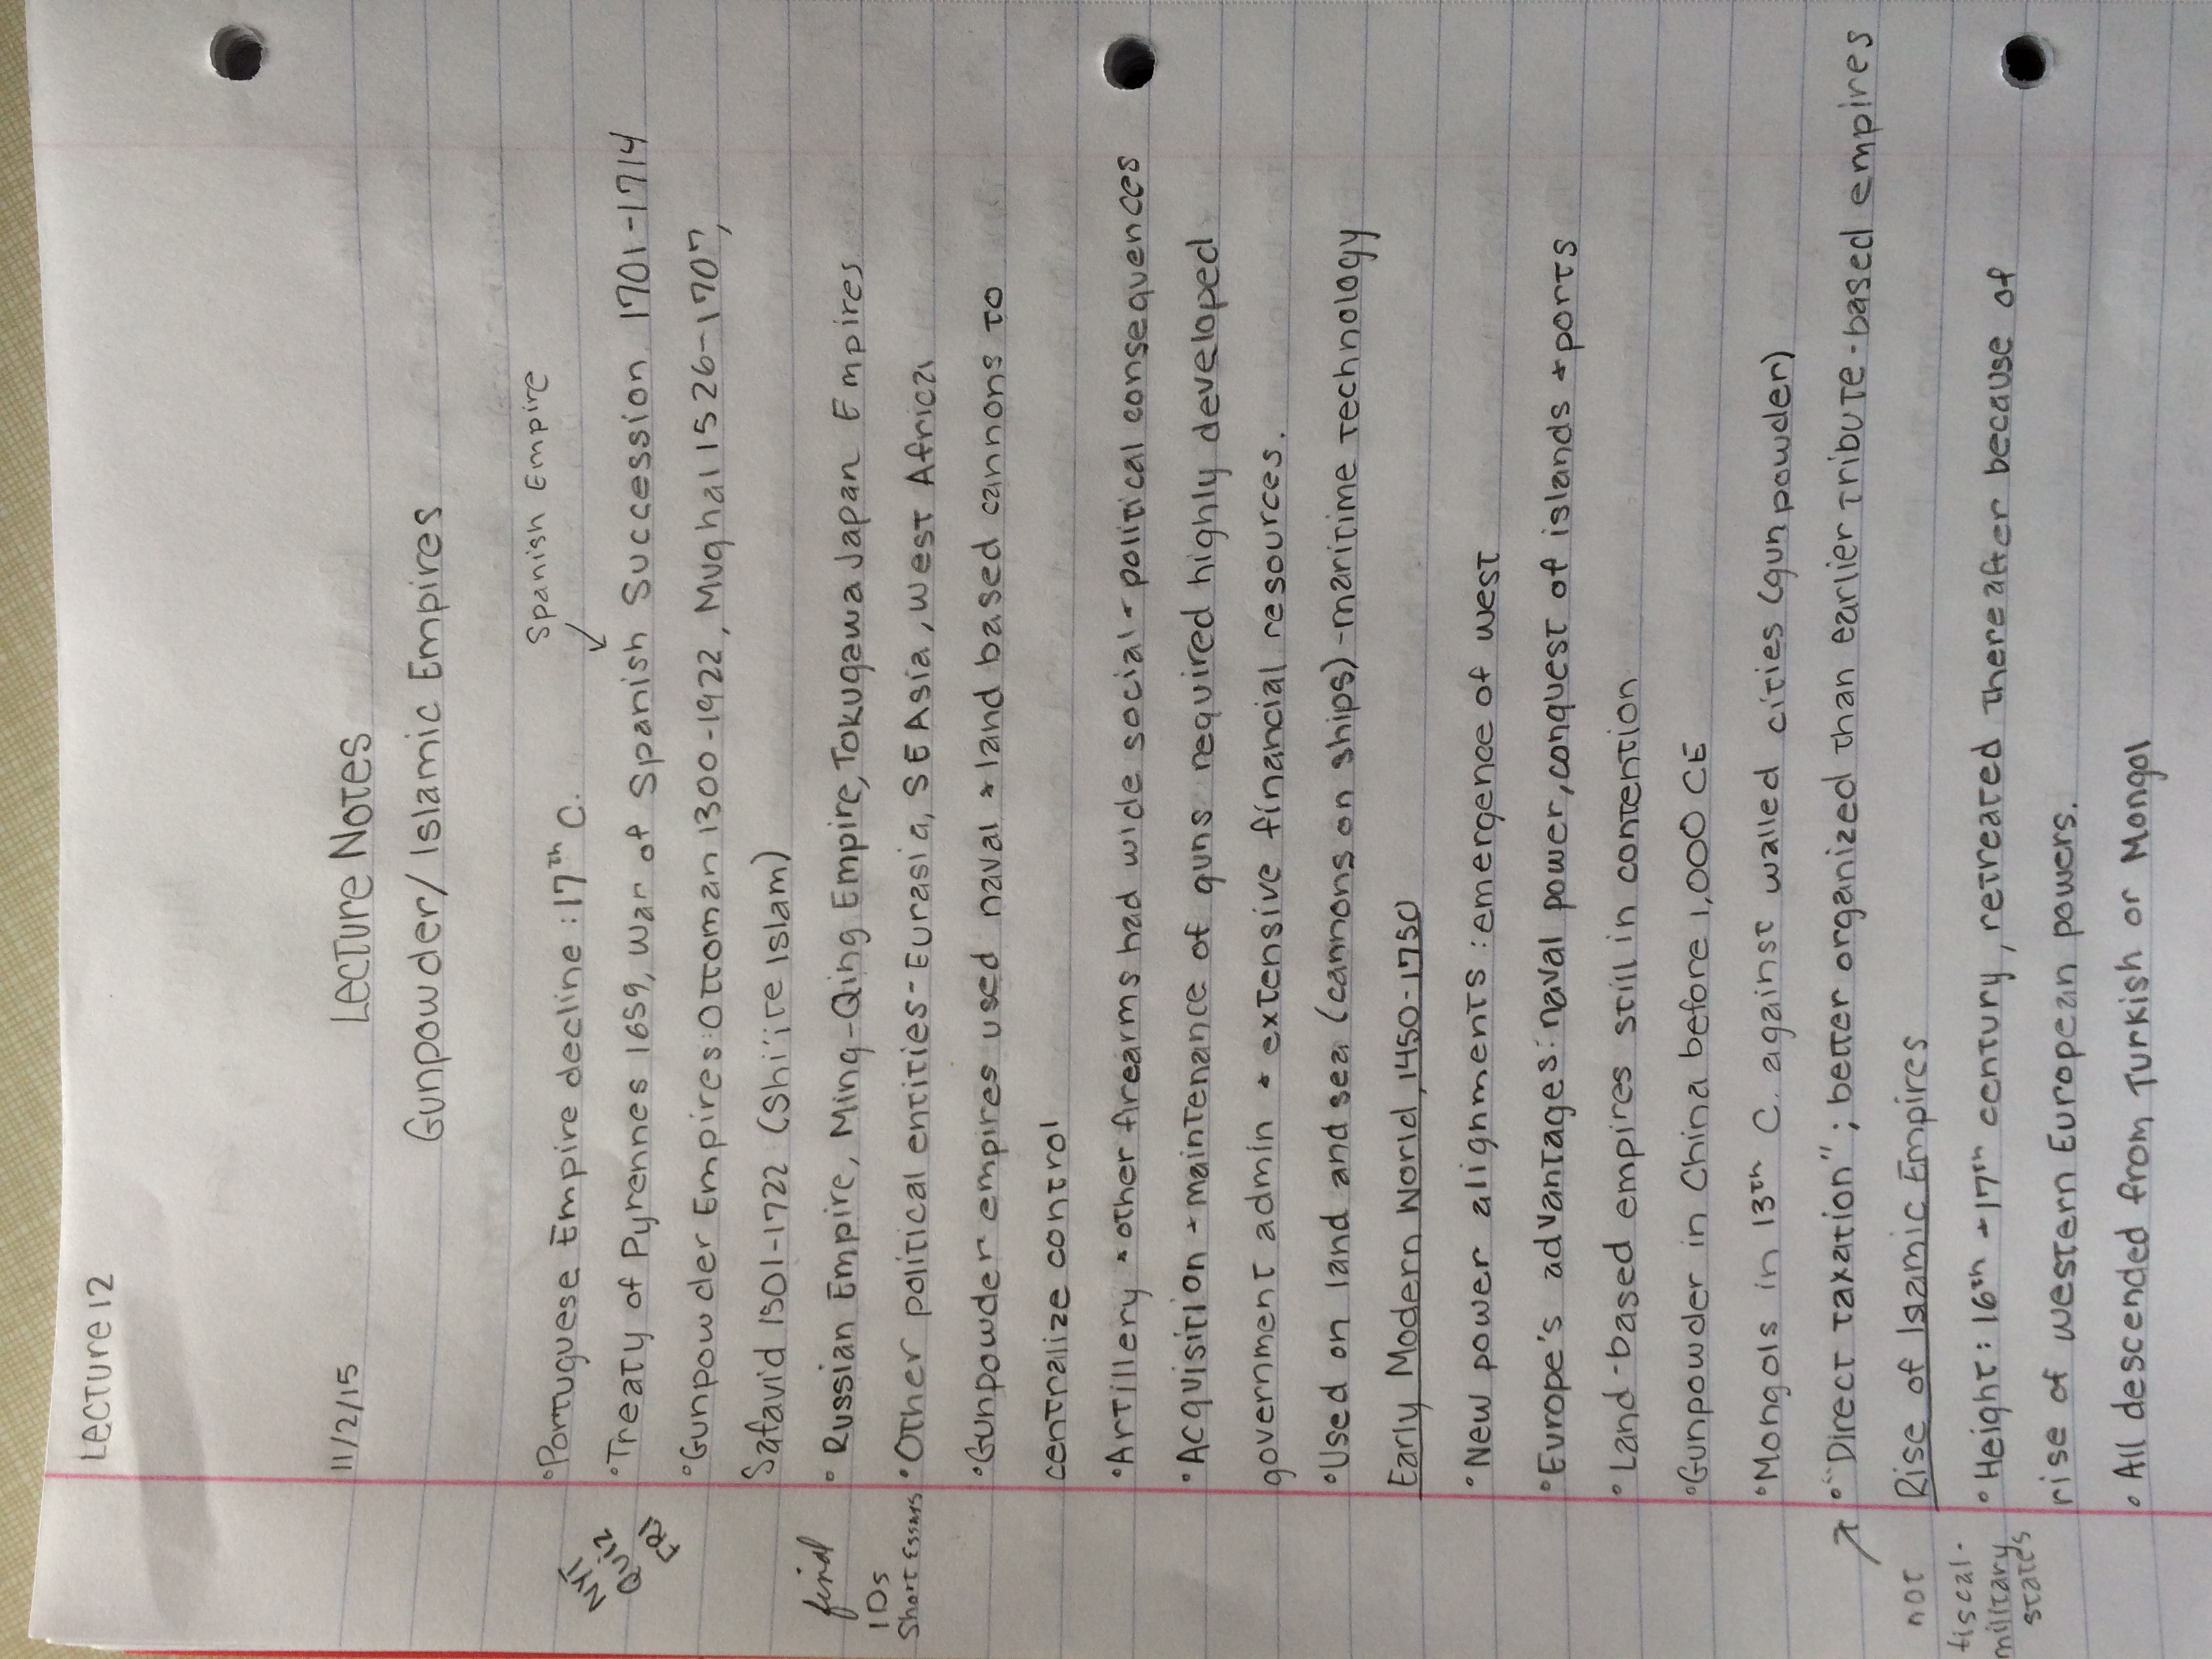 Lecture 12
11/2/15
Lecture Notes
Gunpowder/Islamic Empires
Spanish Empire
•Portuguese Empire decline: 17th C.
•Treaty of Pyrennes 1659, War of Spanish Succession 1701-1714
•Gunpowder Empires: Ottoman 1300-1922, Mughal 1526-1707,
Safavid 1501-1722 (Shi'ite Islam)
final
• Russian Empire, Ming-Qing Empire, Tokugawa Japan Empires
IDs
Short Essays
•Other political entities-Eurasia, SE Asia, West Africa
•Gunpowder empires used naval + land based cannons to
centralize control
•Artillery + other firearms had wide social-political consequences
•Acquisition + maintenance of guns required highly developed
government admin + extensive financial resources.
•Used on land and sea (cannons on ships)-maritime technology
Early Modern World, 1450-1750
•New power alignments: emergence of west
•Europe's advantages: naval power, conquest of islands + ports
• Land-based empires still in contention
•Gunpowder in China before 1,000 CE
•Mongols in 13th C. against walled cities (gunpowder)
•"Direct taxation"; better organized than earlier tribute-based empires
not
fiscal-
military
states
Rise of Islamic Empires
• Height: 16th-17th century, retreated thereafter because of
rise of western European powers.
• All descended from Turkish or Mongol